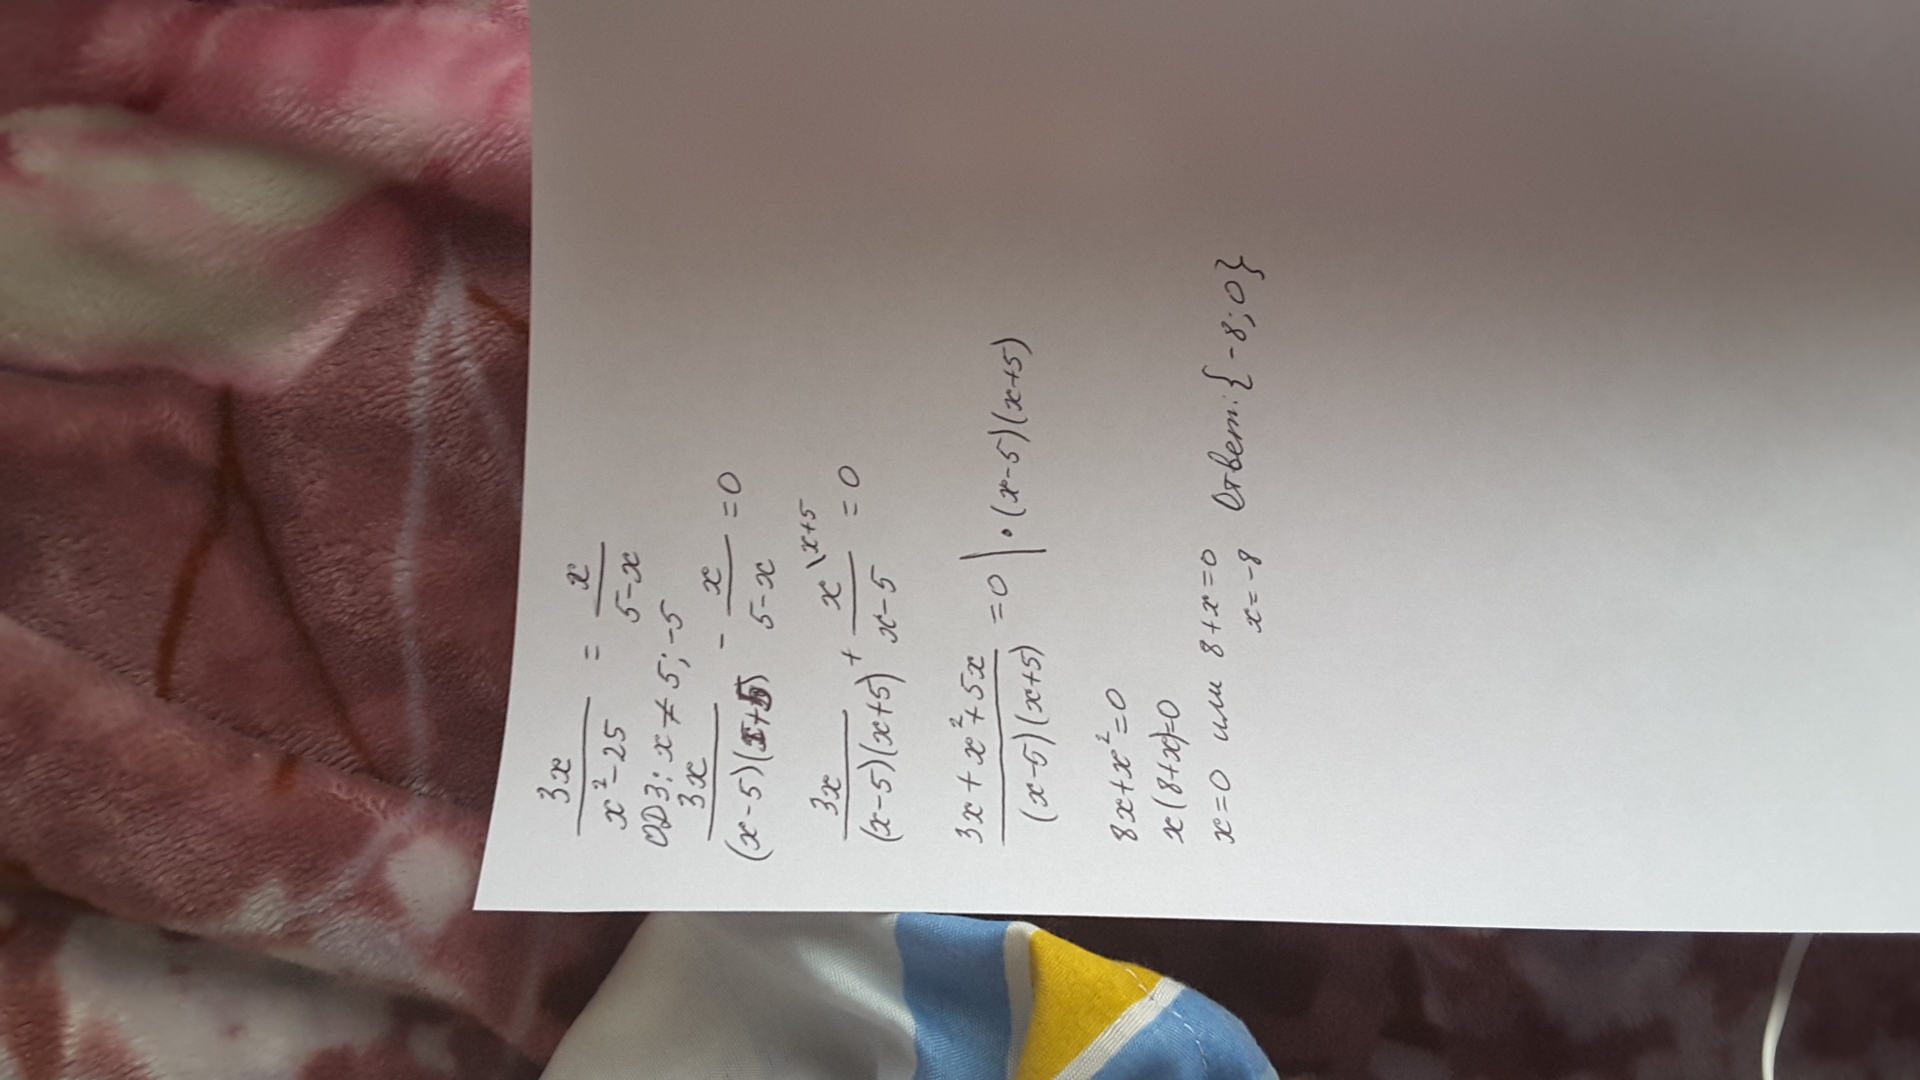 3x / (x²-25) = x / (5-x)
ОДЗ: x ≠ 5; -5
3x / ((x-5)(x+5)) - x / (5-x) = 0
3x / ((x-5)(x+5)) + x \x+5 / (x-5) = 0
(3x + x² + 5x) / ((x-5)(x+5)) = 0 | • (x-5)(x+5)
8x+x²=0
x(8+x)=0
x=0 или 8+x=0
x=-8 Ответ: {-8; 0}